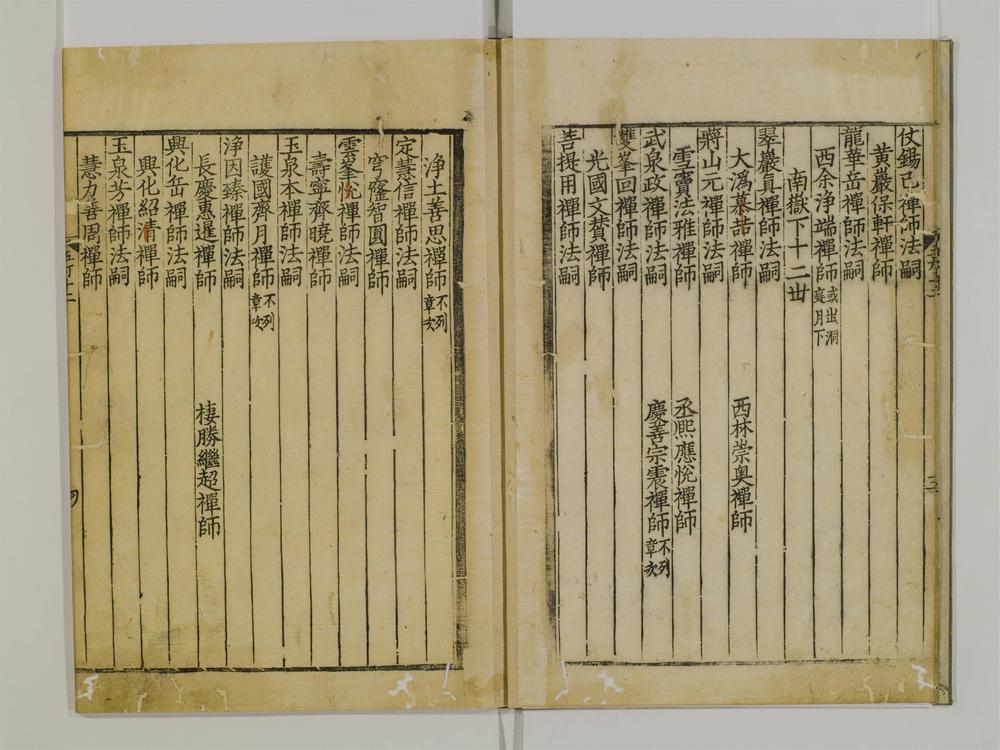 仗錫己禪師法嗣
黃巖保軒禪師
龍華岳禪師法嗣
西余淨端禪師 或出洞庭月下
南嶽下十二世
翠巖眞禪師法嗣
大潙慕喆禪師 西林崇奥禪師
蔣山元禪師法嗣
雪竇法雅禪師 丞熙應恱禪師
武泉政禪師法嗣 慶善宗震禪師 不列章次
雙峯回禪師法嗣
光國文賛禪師
菩提用禪師法嗣
三
淨土善思禪師 不列章次
定慧信禪師法嗣
穹窿智圓禪師
雲峯恱禪師法嗣
壽寧齊曉禪師
玉泉本禪師法嗣
護國齊月禪師 不列章次
淨因臻禪師法嗣
長慶惠暹禪師 棲勝繼超禪師
興化岳禪師法嗣
興化紹清禪師
玉泉芳禪師法嗣
慧力善周禪師